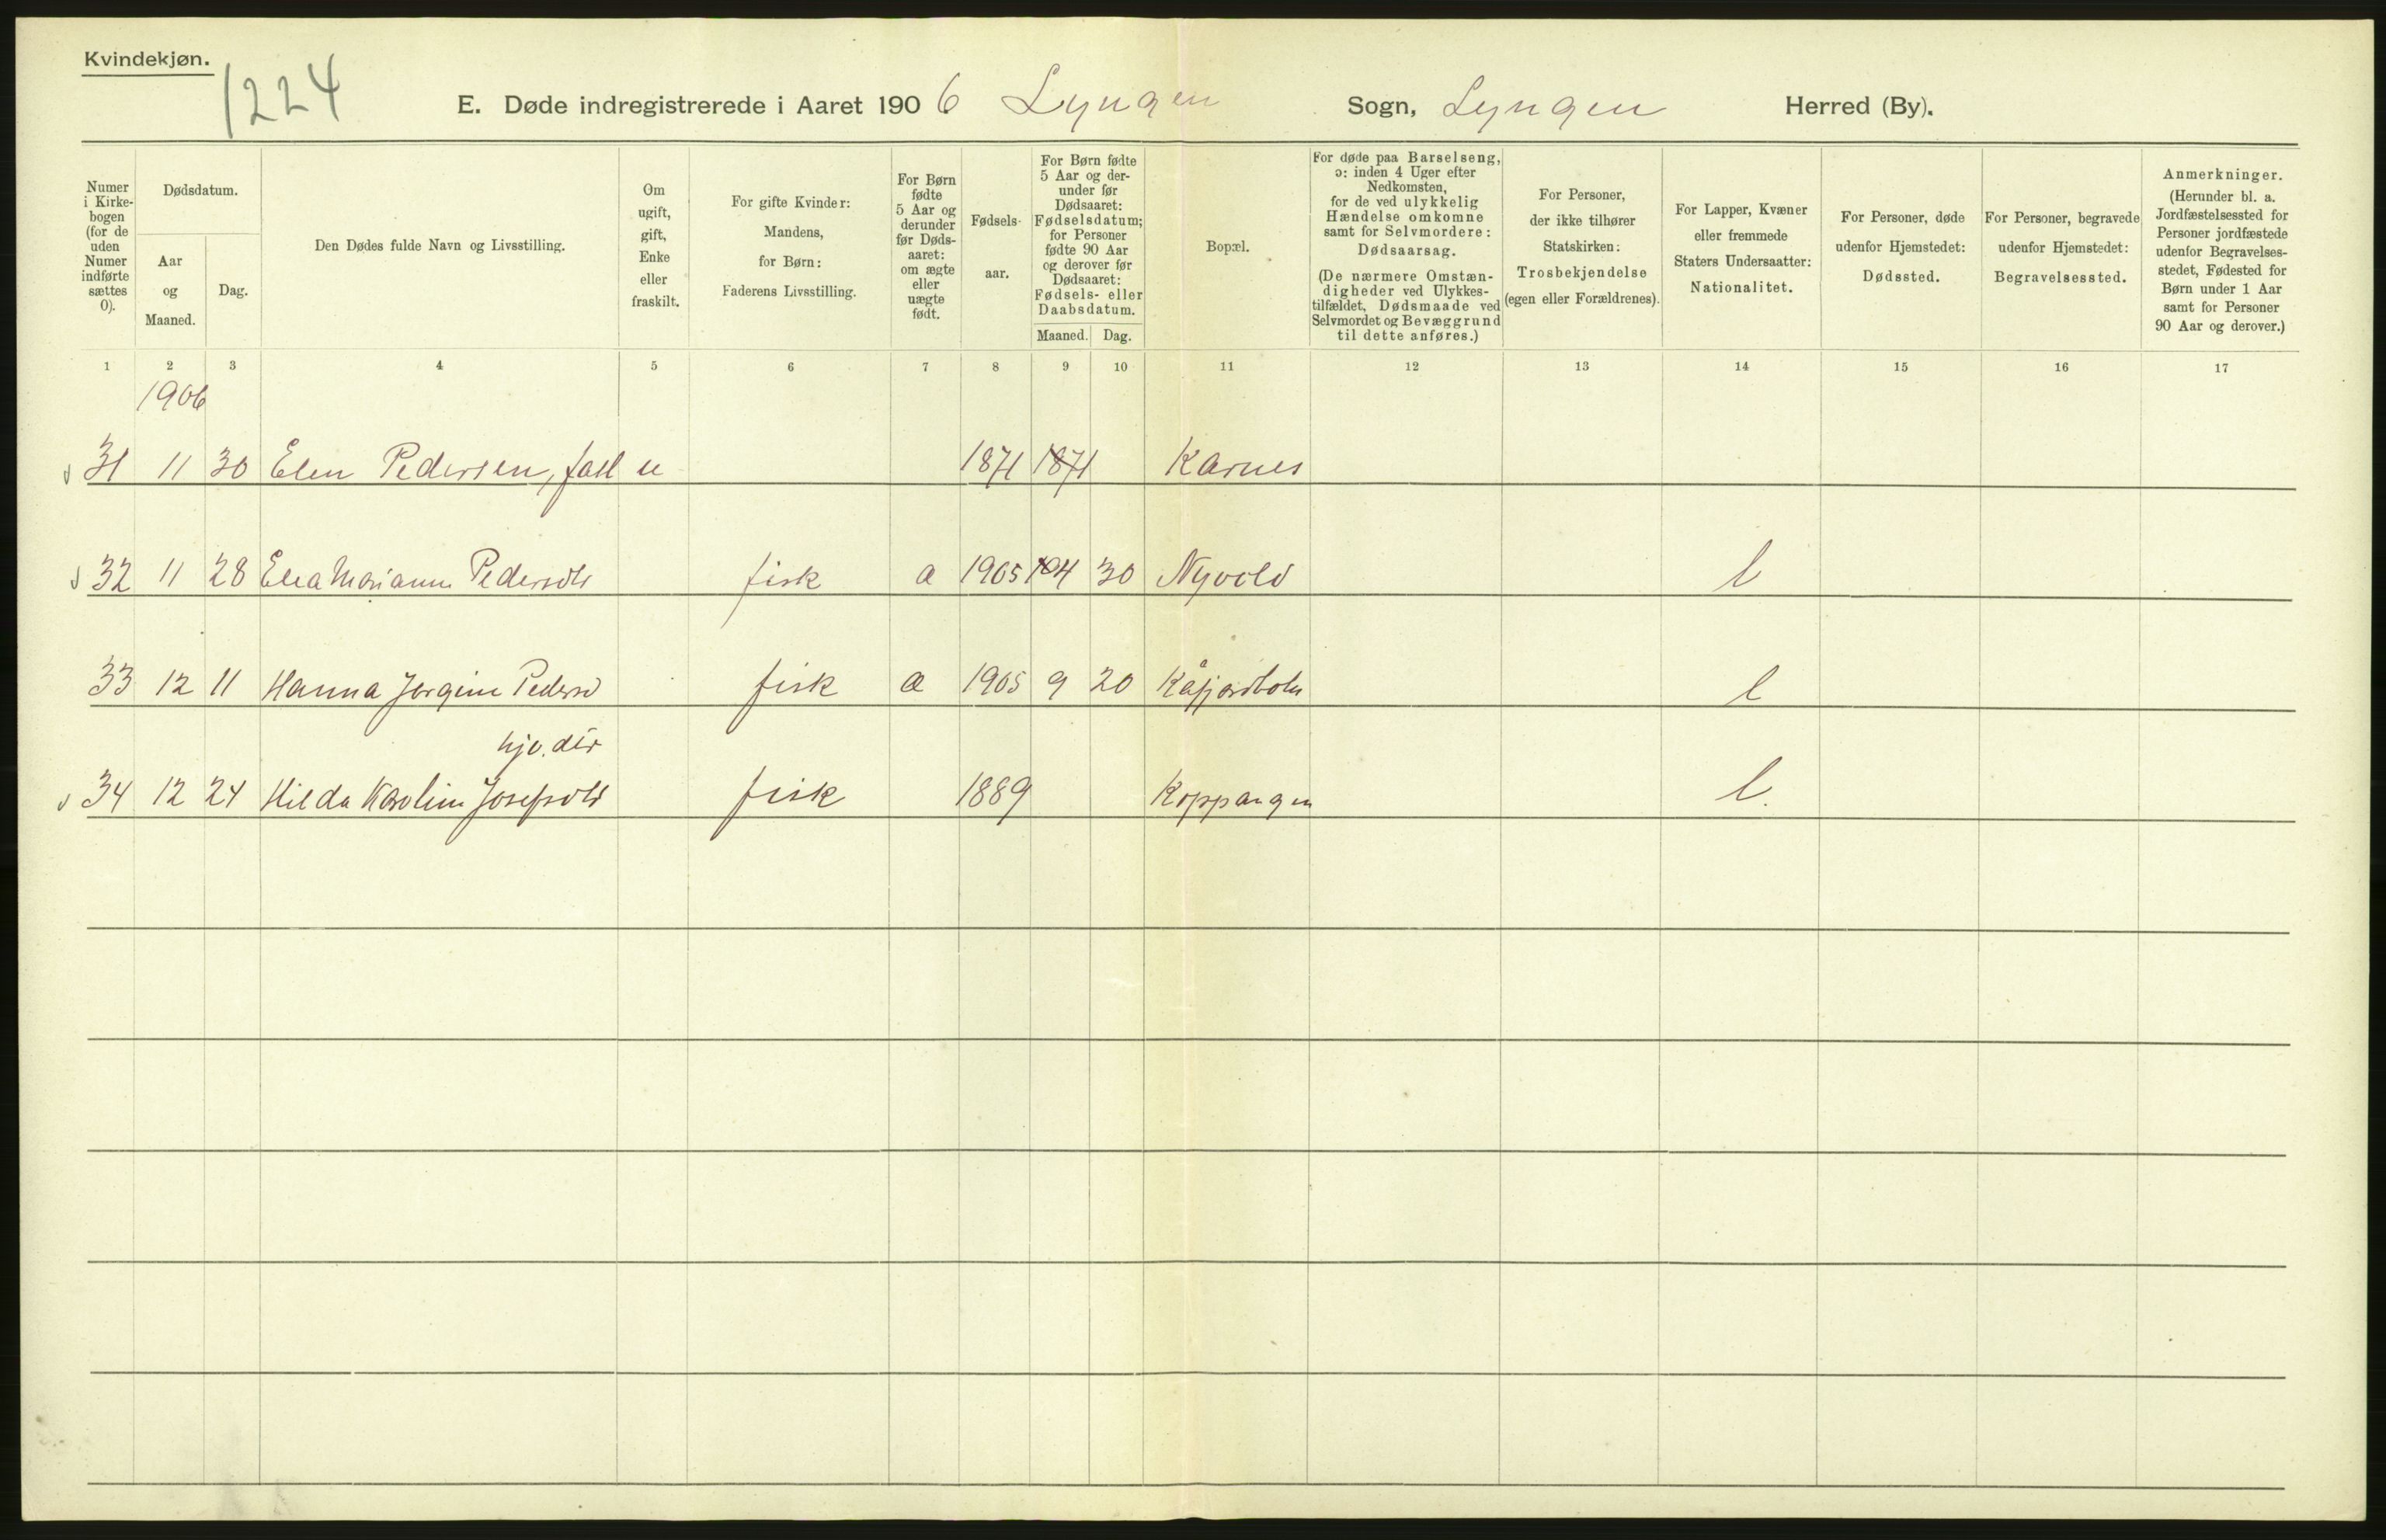 Kvindekjøn.
1224
E. Døde indregistrerede i Aaret 1906 Lyngen Sogn, Lyngen Herred (By).
Numer i Kirkebogen (for de uden Numer indførte sættes 0).
Dødsdatum.
Aar og Maaned.
Dag.
Den Dødes fulde Navn og Livsstilling.
Om ugift, gift, Enke eller fraskilt.
For gifte Kvinder: Mandens, for Børn: Faderens Livsstilling.
For Børn fødte 5 Aar og derunder før Dødsaaret: om ægte eller uægte født.
Fødselsaar.
For Børn fødte 5 Aar og derunder før Dødsaaret: Fødselsdatum; for Personer fødte 90 Aar og derover før Dødsaaret: Fødsels- eller Daabsdatum.
Maaned. Dag.
Bopæl.
For døde paa Barselseng, ɔ: inden 4 Uger efter Nedkomsten, for de ved ulykkelig Hændelse omkomne samt for Selvmordere: Dødsaarsag.
(De nærmere Omstændigheder ved Ulykkestilfældet, Dødsmaade ved Selvmordet og Bevæggrund til dette anføres.)
For Personer, der ikke tilhører Statskirken: Trosbekjendelse (egen eller Forældrenes).
For Lapper, Kvæner eller fremmede Staters Undersaatter: Nationalitet.
For Personer, døde udenfor Hjemstedet: Dødssted.
For Personer, begravede udenfor Hjemstedet: Begravelsessted.
Anmerkninger.
(Herunder bl. a. Jordfæstelsessted for Personer jordfæstede udenfor Begravelsesstedet, Fødested for Børn under 1 Aar samt for Personer 90 Aar og derover.)
1 2 3 4 5 6 7 8 9 10 11 12 13 14 15 16 17
1906
31 11 30 Elen Pedersen, u 1871 1871 Karnes
32 11 28 Pedersdtr fisk a 1905 4 30 Nyvold l
33 12 11 Hanna Jorgine Pedersd fisk a 1905 9 20 Kåfjordbotn l
34 12 24 Hilda Karolin Josefsdtr fisk 1889 Koppangen l.